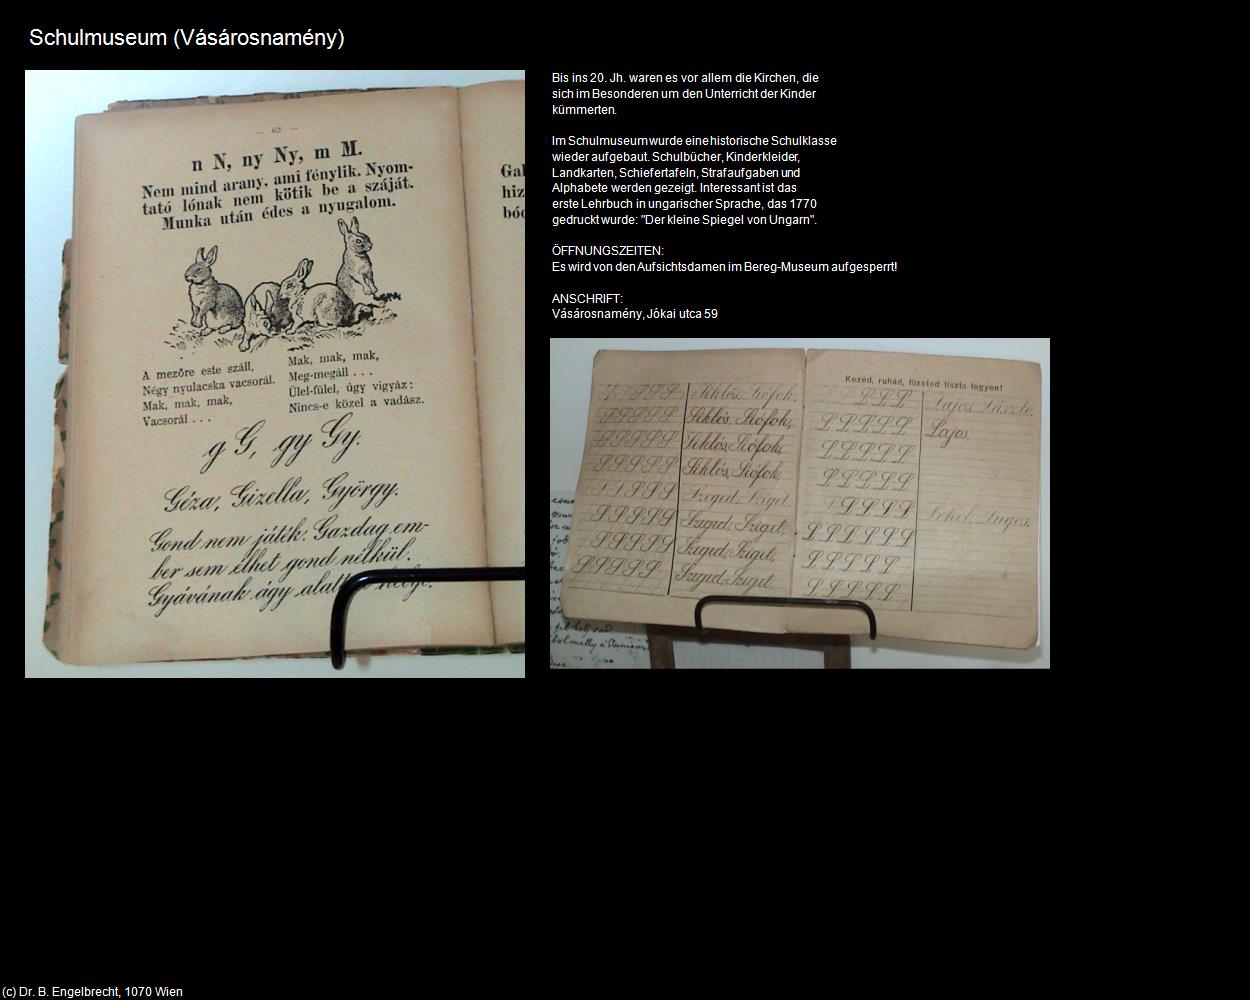 Schulmuseum (Vásárosnamény)
— 62 —
n N, ny Ny, m M.
Nem mind arany, ami fénylik. Nyom-
tató lónak nem kötik be a száját.
Munka után édes a nyugalom.
A mezőre este száll,
Négy nyulacska vacsorál.
Mak, mak, mak,
Vacsorál . . .
Mak, mak, mak,
Meg-megáll . . .
Ülel-fülel, úgy vigyáz:
Nincs-e közel a vadász.
g G, gy Gy.
Géza, Gizella, György.
Gond nem játék. Gazdag em-
ber sem élhet gond nélkül.
Gyávának ágy alatt
Gal
hiz
bóc
Bis ins 20. Jh. waren es vor allem die Kirchen, die
sich im Besonderen um den Unterricht der Kinder
kümmerten.
Im Schulmuseum wurde eine historische Schulklasse
wieder aufgebaut. Schulbücher, Kinderkleider,
Landkarten, Schiefertafeln, Strafaufgaben und
Alphabete werden gezeigt. Interessant ist das
erste Lehrbuch in ungarischer Sprache, das 1770
gedruckt wurde: "Der kleine Spiegel von Ungarn".
ÖFFNUNGSZEITEN:
Es wird von den Aufsichtsdamen im Bereg-Museum aufgesperrt!
ANSCHRIFT:
Vásárosnamény, Jókai utca 59
S S S S S Siklós, Siófok.
S S S S S Siklós, Siófok,
S S S S S Siklós, Siófok,
S S S S S Siklós, Siófok,
S S S S S Szeged, Sziget.
S S S S S Szeged, Sziget,
S S S S S Szeged, Sziget,
S S S S S Szeged, Sziget.
Kezed, ruhád, füzeted tiszta legyen!
L L L Lajos, László.
L L L L L Lajos,
L L L L L
L L L L L
L L L L Lehel, Lugos.
L L L L L L
L L L L L
L L L L L
(c) Dr. B. Engelbrecht, 1070 Wien